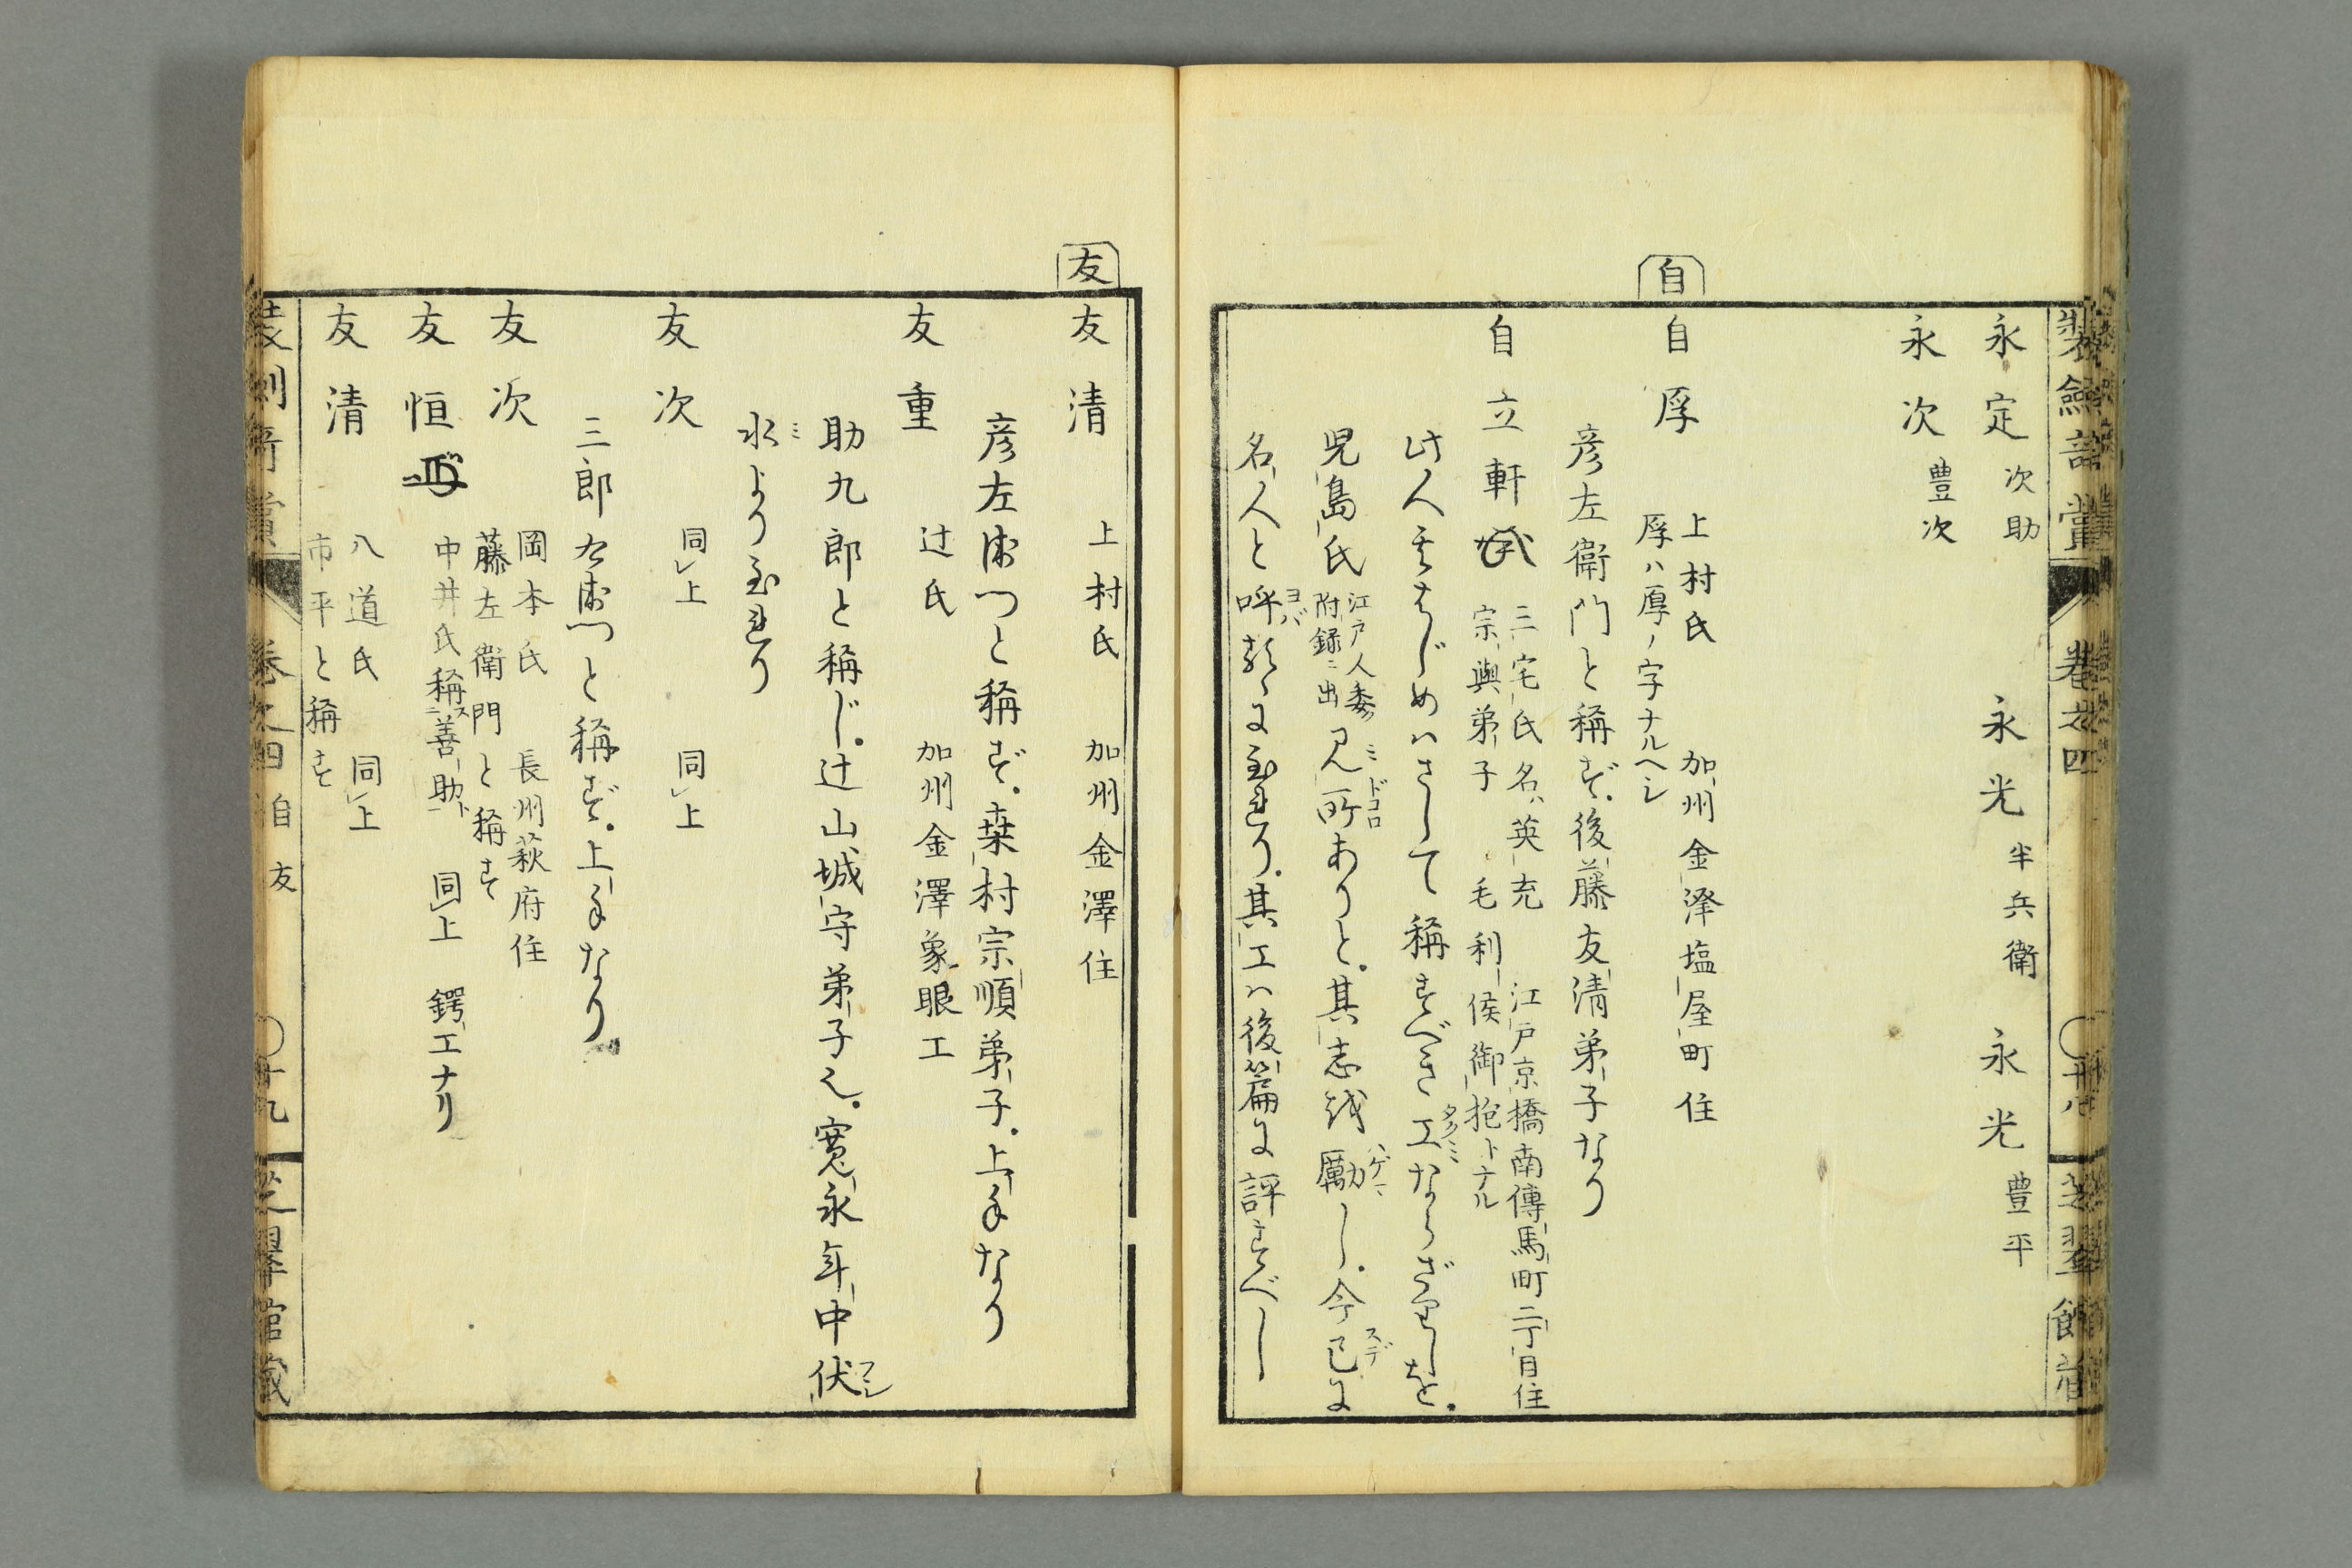 装劔奇賞 巻之四 〇十八 芝翠館蔵
永定 次助 永光 半兵衛 永光 豊平
永次 豊次
自
自厚 上村氏 加州金澤塩屋町住
厚ハ厚ノ字ナルヘシ
彦左衛門と稱ず後藤友清弟子なり
自立軒 三宅氏名ハ英充 江戸京橋南傳馬町二丁目住
宗與弟子 毛利侯御抱トナル
此人はじめはさして稱すべき工ならざりしを
タクミ
児島氏 江戸人委ク
附録ニ出 見所ありと其志を励し今已に
ミドコロ ハゲマ スデ
名人と呼るゝに至れり其工ハ後篇に評すべし
ヨバ
友
友清 上村氏 加州金澤住
彦左衛門と稱ず桑村宗順弟子上手なり
友重 辻氏 加州金澤象眼工
助九郎と稱じ辻山城守弟子也寛永年中伏
フシ
水より至れり
ミ
友次 同上 同上
三郎左衛門と稱ず上手なり
友次 岡本氏 長州萩府住
藤左衛門と稱す
友恒 中井氏稱ス善助ト 同上 鍔工ナリ
友清 八道氏 同上
市平と稱す
装剣奇賞 巻之四 自 友 〇十九 芝翠館蔵